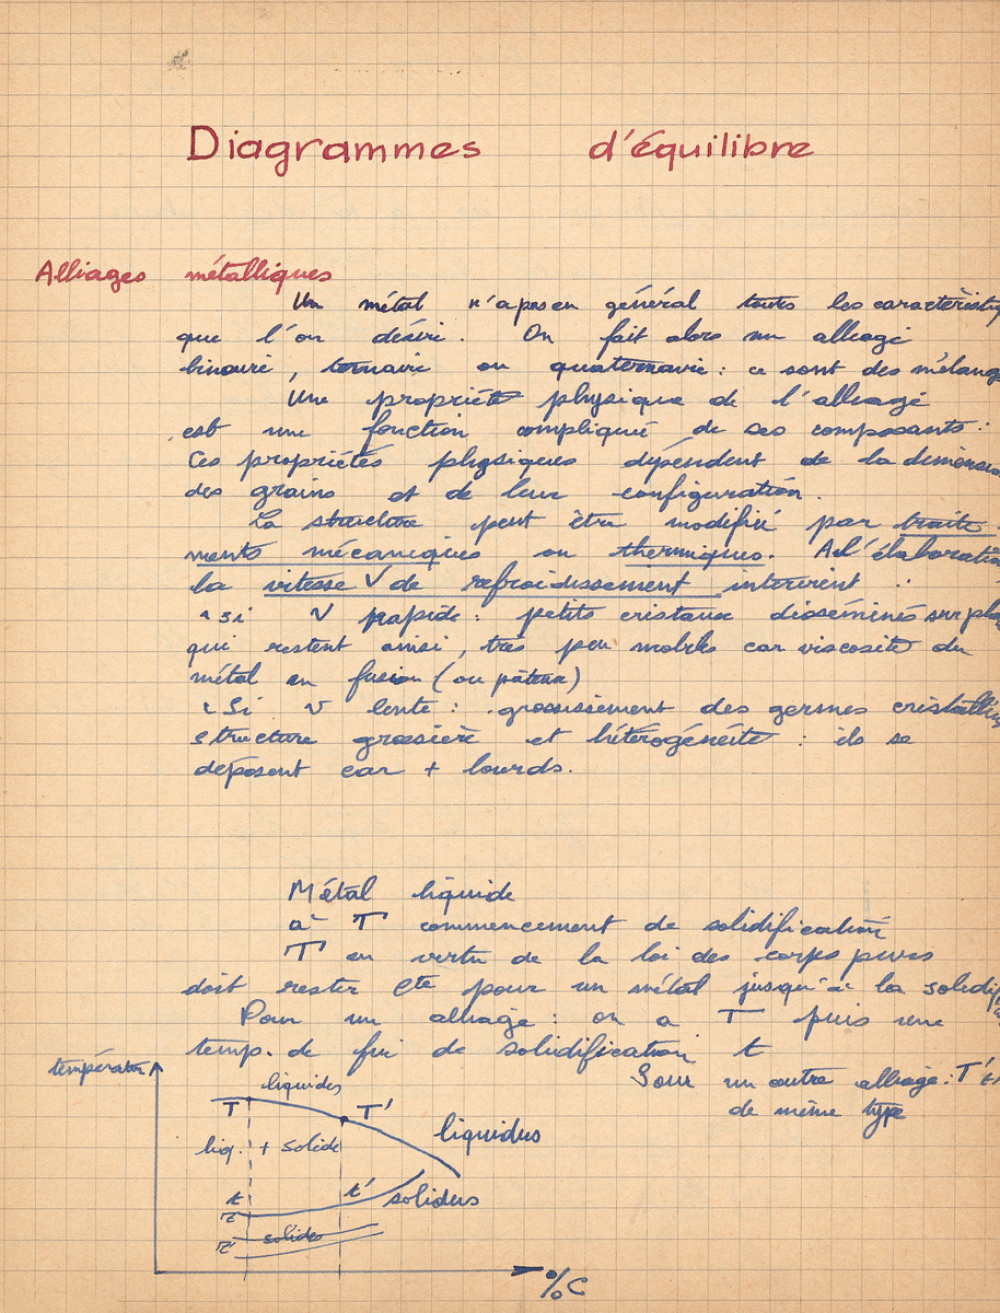 Diagrammes d'équilibre
Alliages métalliques
Un métal n'a pas en général toutes les caractéristiq
que l'on désire. On fait alors un alliage
binaire, ternaire ou quaternaire : ce sont des mélang
Une propriété physique de l'alliage
est une fonction compliquée de ses composants :
Ces propriétés physiques dépendent de la dimension
des grains et de leur configuration.
La structure peut être modifiée par traite
ments mécaniques ou thermiques. A l'élaboration
la vitesse V de refroidissement intervient :
si V rapide : petits cristaux disséminés sur pla
qui restent ainsi, très peu mobiles car viscosité du
métal en fusion (ou pâteux)
Si V lente : grossissement des germes cristallins
structure grossière et hétérogénéité : ils se
déposent car + lourds.
Métal liquide
à T commencement de solidification
T en vertu de la loi des corps purs
doit rester Cte pour un métal jusqu'à la solidif
Pour un alliage : on a T puis une
temp. de fin de solidification t
Pour un autre alliage : T' t'
de même type
température
liquides
T T'
liquidus
liq. + solide
t t' solidus
solides
%C